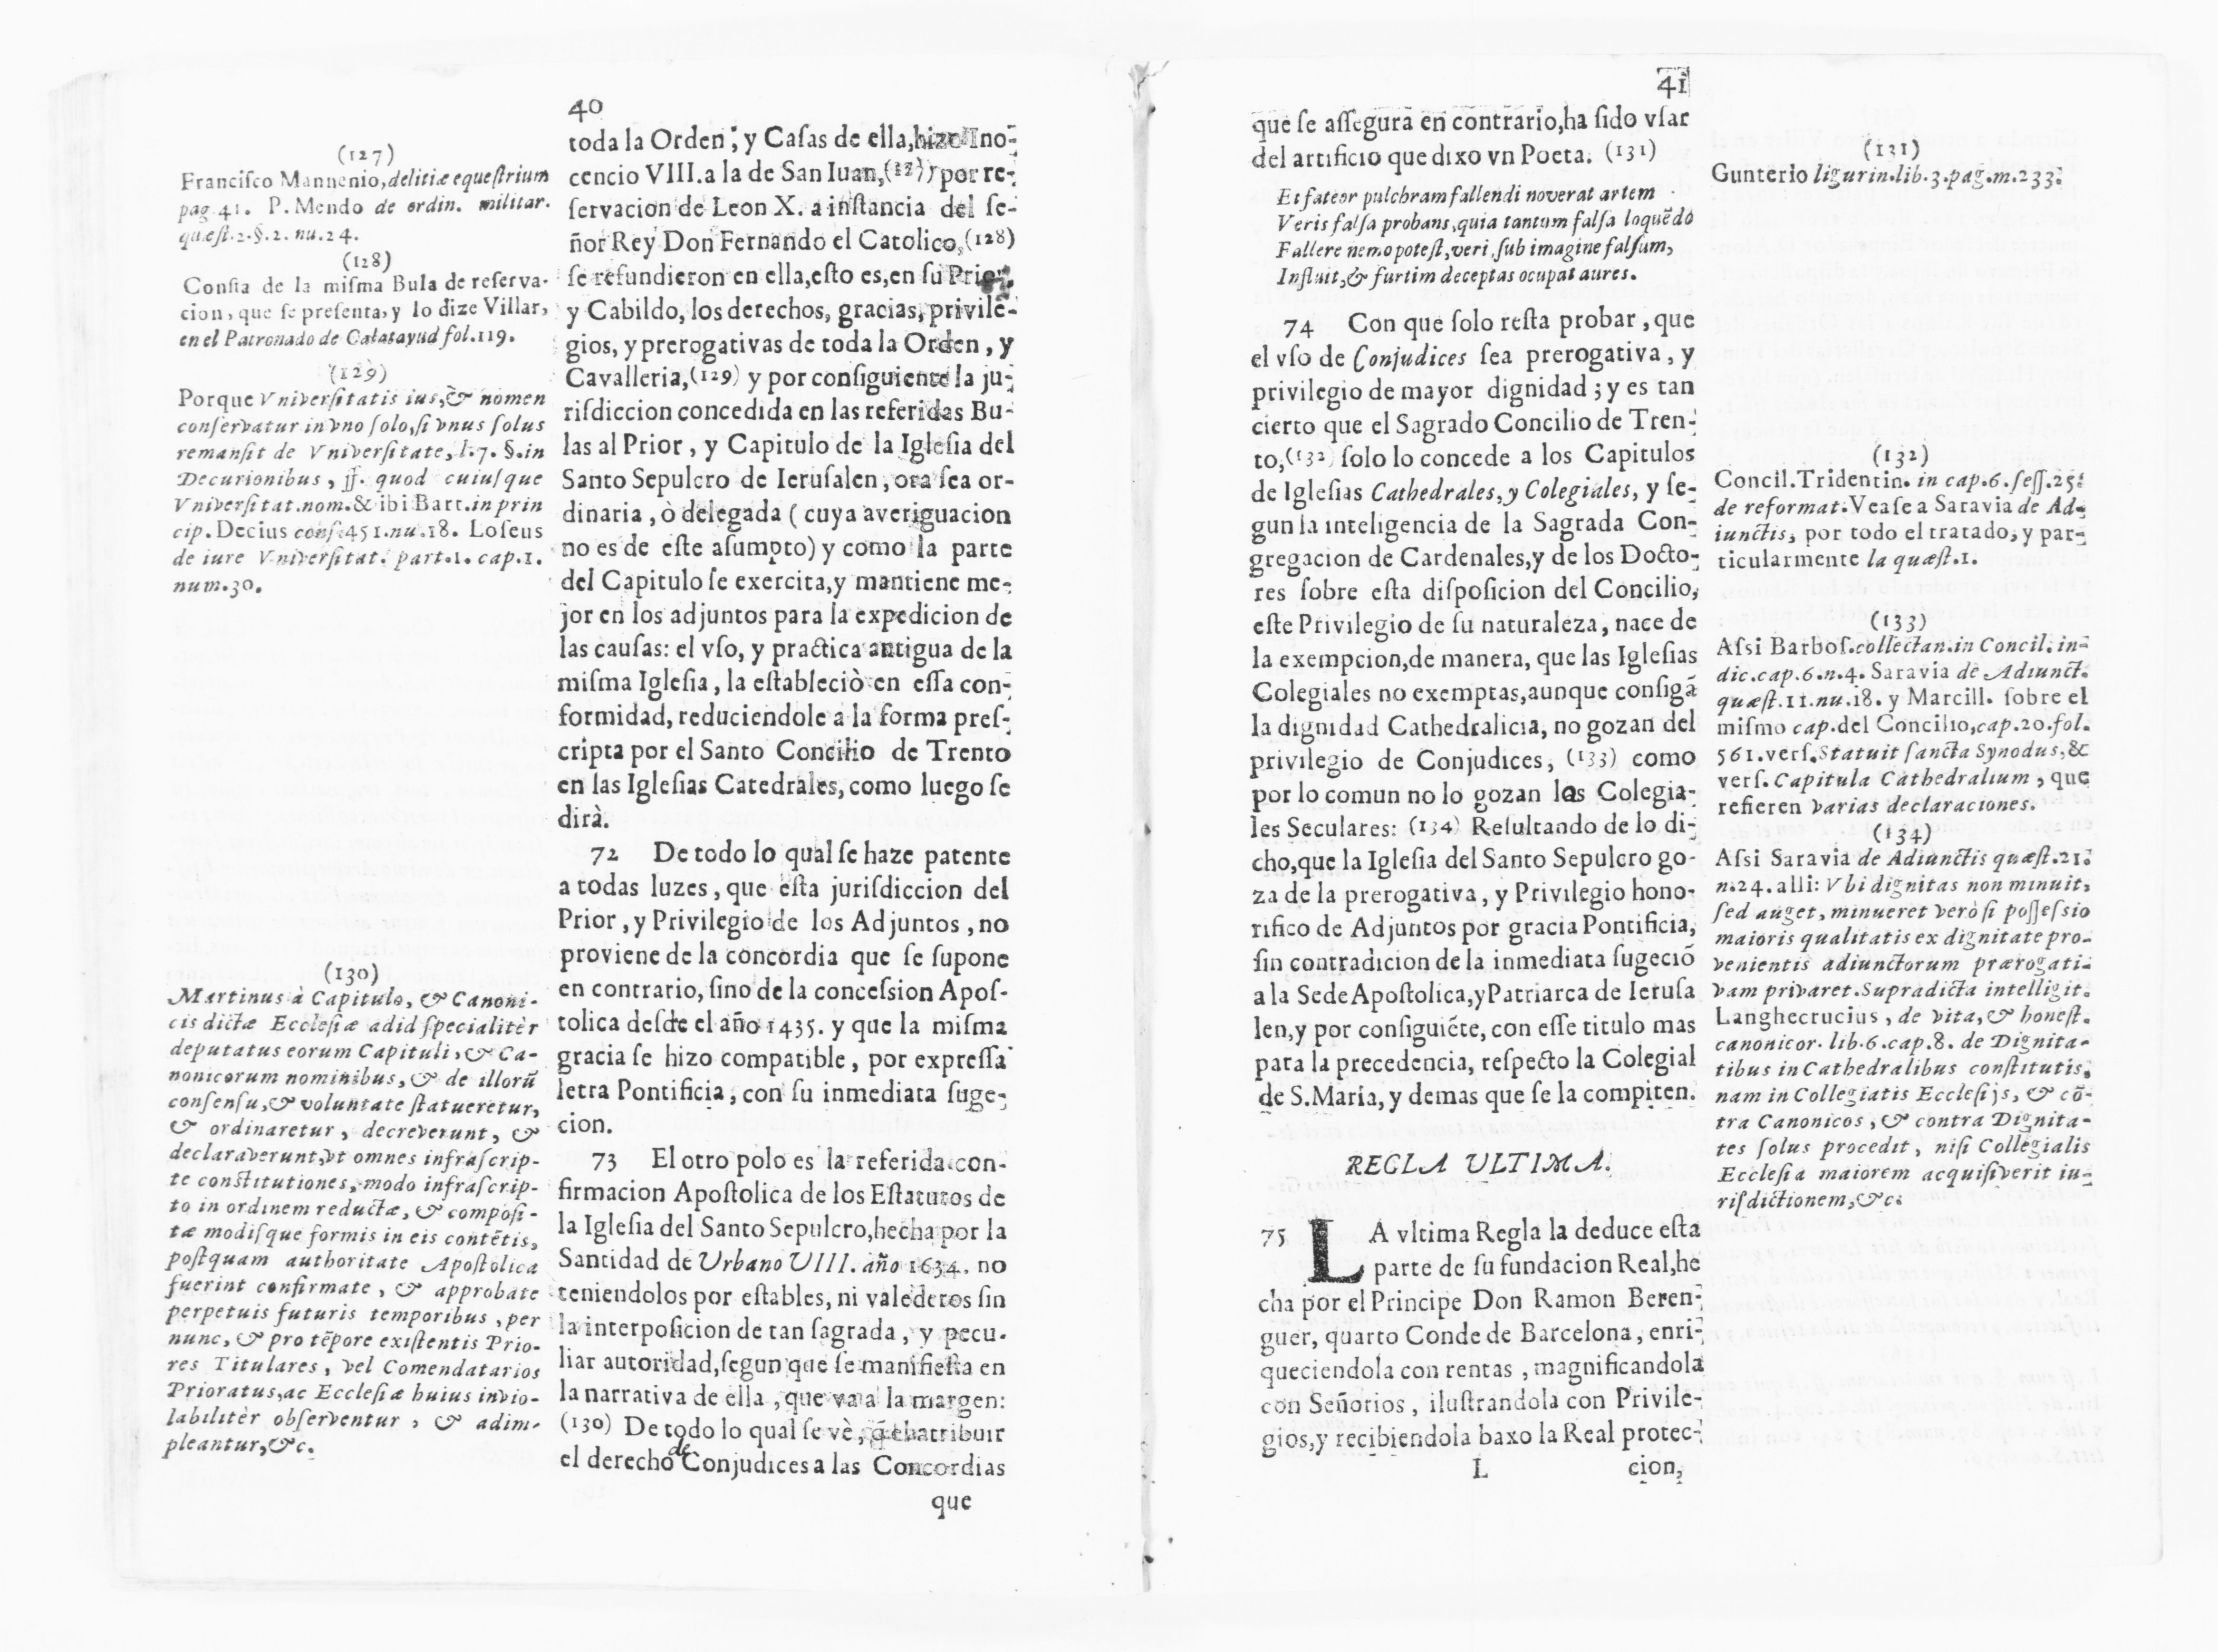 40
toda la Orden; y Casas de ella, hizo Ino-
cencio VIII. a la de San Iuan, (127) y por re-
servacion de Leon X. a instancia del se-
ñor Rey Don Fernando el Catolico, (128)
se refundieron en ella, esto es, en su Prior,
y Cabildo, los derechos, gracias, privile-
gios, y prerogativas de toda la Orden, y
Cavalleria, (129) y por consiguiente la ju-
risdiccion concedida en las referidas Bu-
las al Prior, y Capitulo de la Iglesia del
Santo Sepulcro de Ierusalen, ora sea or-
dinaria, ò delegada (cuya averiguacion
no es de este asumpto) y como la parte
del Capitulo se exercita, y mantiene me-
jor en los adjuntos para la expedicion de
las causas: el vso, y practica antigua de la
misma Iglesia, la estableciò en essa con-
formidad, reduciendole a la forma pres-
cripta por el Santo Concilio de Trento
en las Iglesias Catedrales, como luego se
dirà.
72 De todo lo qual se haze patente
a todas luzes, que esta jurisdiccion del
Prior, y Privilegio de los Adjuntos, no
proviene de la concordia que se supone
en contrario, sino de la concession Apos-
tolica desde el año 1435. y que la misma
gracia se hizo compatible, por expressa
letra Pontificia, con su inmediata suge-
cion.
73 El otro polo es la referida con-
firmacion Apostolica de los Estatutos de
la Iglesia del Santo Sepulcro, hecha por la
Santidad de Urbano VIII. año 1634. no
teniendolos por estables, ni valederos sin
la interposicion de tan sagrada, y pecu-
liar autoridad, segun que se manifiesta en
la narrativa de ella, que va al la margen:
(130) De todo lo qual se vè, q̃ el atribuir
el derecho de Conjudices a las Concordias
que
(127)
Francisco Mannenio, delitiæ equestrium
pag. 41. P. Mendo de ordin. militar.
quæst. 2. §. 2. nu. 24.
(128)
Consta de la misma Bula de reserva-
cion, que se presenta, y lo dize Villar,
en el Patronado de Calatayud fol. 119.
(129)
Porque Vniversitatis ius, & nomen
conservatur in vno solo, si vnus solus
remansit de Vniversitate, l. 7. §. in
Decurionibus, ff. quod cuiusque
Vniversitat. nom. & ibi Bart. in prin
cip. Decius cons. 451. nu. 18. Loseus
de iure Vniversitat. part. 1. cap. 1.
num. 30.
(130)
Martinus à Capitulo, & Canoni-
cis dictæ Ecclesiæ ad id specialitèr
deputatus eorum Capituli, & Ca-
nonicorum nominibus, & de illorũ
consensu, & voluntate statueretur,
& ordinaretur, decreverunt, &
declaraverunt, vt omnes infrascrip-
te constitutiones, modo infrascrip-
to in ordinem reductæ, & composi-
tæ modisque formis in eis contẽtis,
postquam authoritate Apostolica
fuerint confirmate, & approbate
perpetuis futuris temporibus, per
nunc, & pro tẽpore existentis Prio-
res Titulares, vel Comendatarios
Prioratus, ac Ecclesiæ huius invio-
labilitèr observentur, & adim-
pleantur, &c.
41
que se assegura en contrario, ha sido vsar
del artificio que dixo vn Poeta. (131)
Et fateor pulchram fallendi noverat artem
Veris falsa probans, quia tantum falsa loquẽdo
Fallere nemo potest, veri, sub imagine falsum,
Influit, & furtim deceptas ocupat aures.
74 Con que solo resta probar, que
el vso de Conjudices sea prerogativa, y
privilegio de mayor dignidad; y es tan
cierto que el Sagrado Concilio de Tren-
to, (132) solo lo concede a los Capitulos
de Iglesias Cathedrales, y Colegiales, y se-
gun la inteligencia de la Sagrada Con-
gregacion de Cardenales, y de los Docto-
res sobre esta disposicion del Concilio,
este Privilegio de su naturaleza, nace de
la exempcion, de manera, que las Iglesias
Colegiales no exemptas, aunque consigã
la dignidad Cathedralicia, no gozan del
privilegio de Conjudices, (133) como
por lo comun no lo gozan las Colegia-
les Seculares: (134) Resultando de lo di-
cho, que la Iglesia del Santo Sepulcro go-
za de la prerogativa, y Privilegio hono-
rifico de Adjuntos por gracia Pontificia,
sin contradicion de la inmediata sugeciõ
a la Sede Apostolica, y Patriarca de Ierusa
len, y por consiguiẽte, con esse titulo mas
para la precedencia, respecto la Colegial
de S. Maria, y demas que se la compiten.
REGLA ULTIMA.
75 LA vltima Regla la deduce esta
parte de su fundacion Real, he
cha por el Principe Don Ramon Beren-
guer, quarto Conde de Barcelona, enri-
queciendola con rentas, magnificandola
con Señorios, ilustrandola con Privile-
gios, y recibiendola baxo la Real protec-
L cion,
(131)
Gunterio ligurin. lib. 3. pag. m. 233.
(132)
Concil. Tridentin. in cap. 6. sess. 25.
de reformat. Vease a Saravia de Ad-
iunctis, por todo el tratado, y par-
ticularmente la quæst. 1.
(133)
Assi Barbos. collectan. in Concil. in-
dic. cap. 6. n. 4. Saravia de Adiunct.
quæst. 11. nu. 18. y Marcill. sobre el
mismo cap. del Concilio, cap. 20. fol.
561. vers. Statuit sancta Synodus, &
vers. Capitula Cathedralium, que
refieren varias declaraciones.
(134)
Assi Saravia de Adiunctis quæst. 21.
n. 24. alli: Vbi dignitas non minuit,
sed auget, minueret verò si possessio
maioris qualitatis ex dignitate pro-
venientis adiunctorum prærogati-
vam privaret. Supradicta intelligit.
Langhecrucius, de vita, & honest.
canonicor. lib. 6. cap. 8. de Dignita-
tibus in Cathedralibus constitutis,
nam in Collegiatis Ecclesijs, & cõ-
tra Canonicos, & contra Dignita-
tes solus procedit, nisi Collegialis
Ecclesia maiorem acquisiverit iu-
risdictionem, &c.